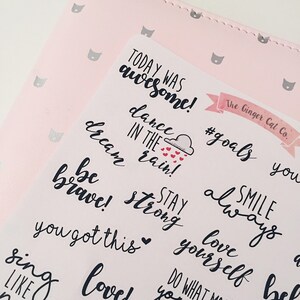 TODAY WAS
awesome!
The Ginger Cat Co.
dance
IN THE
rain!
#goals
you
dream
be
brave!
STAY
strong
SMILE
always
you got this
love
yourself
sing
LIKE
love!
DO WHAT
be